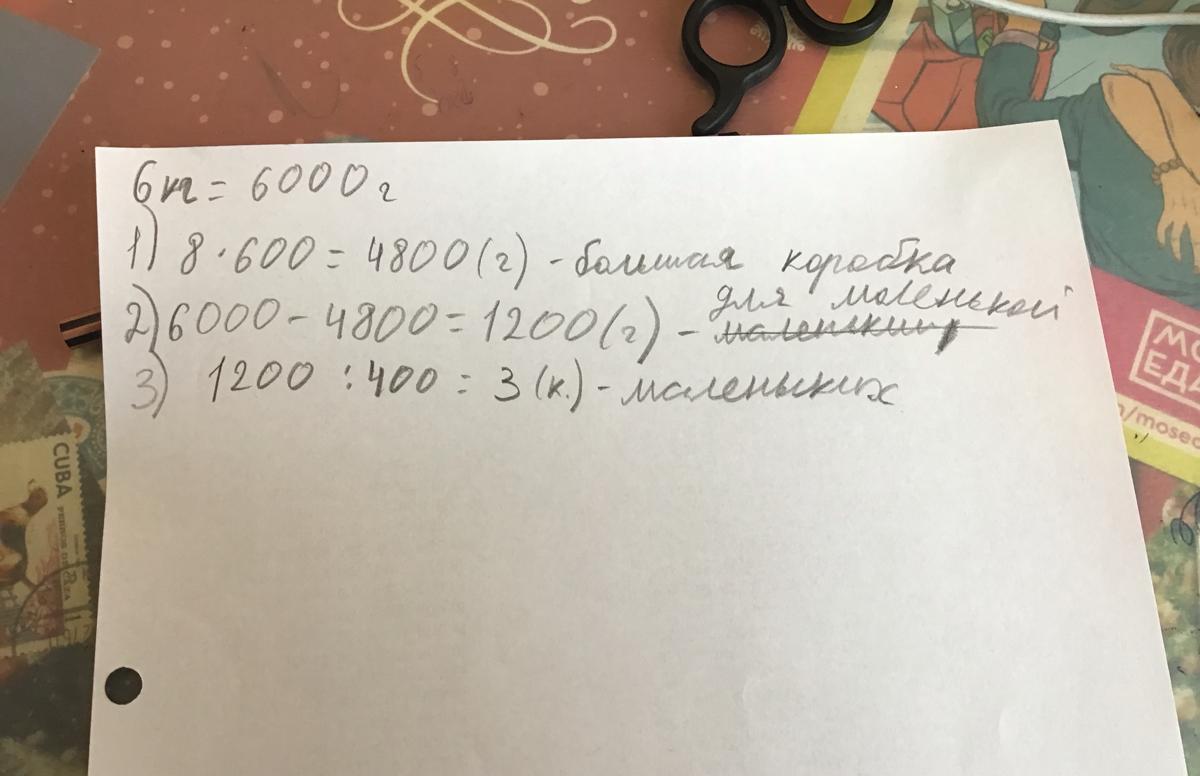 6 кг = 6000 г
1) 8 · 600 = 4800 (г) - большая коробка
2) 6000 - 4800 = 1200 (г) - для маленькой
3) 1200 : 400 = 3 (к.) - маленьких
CUBA
МО
ЕДА
/mosed